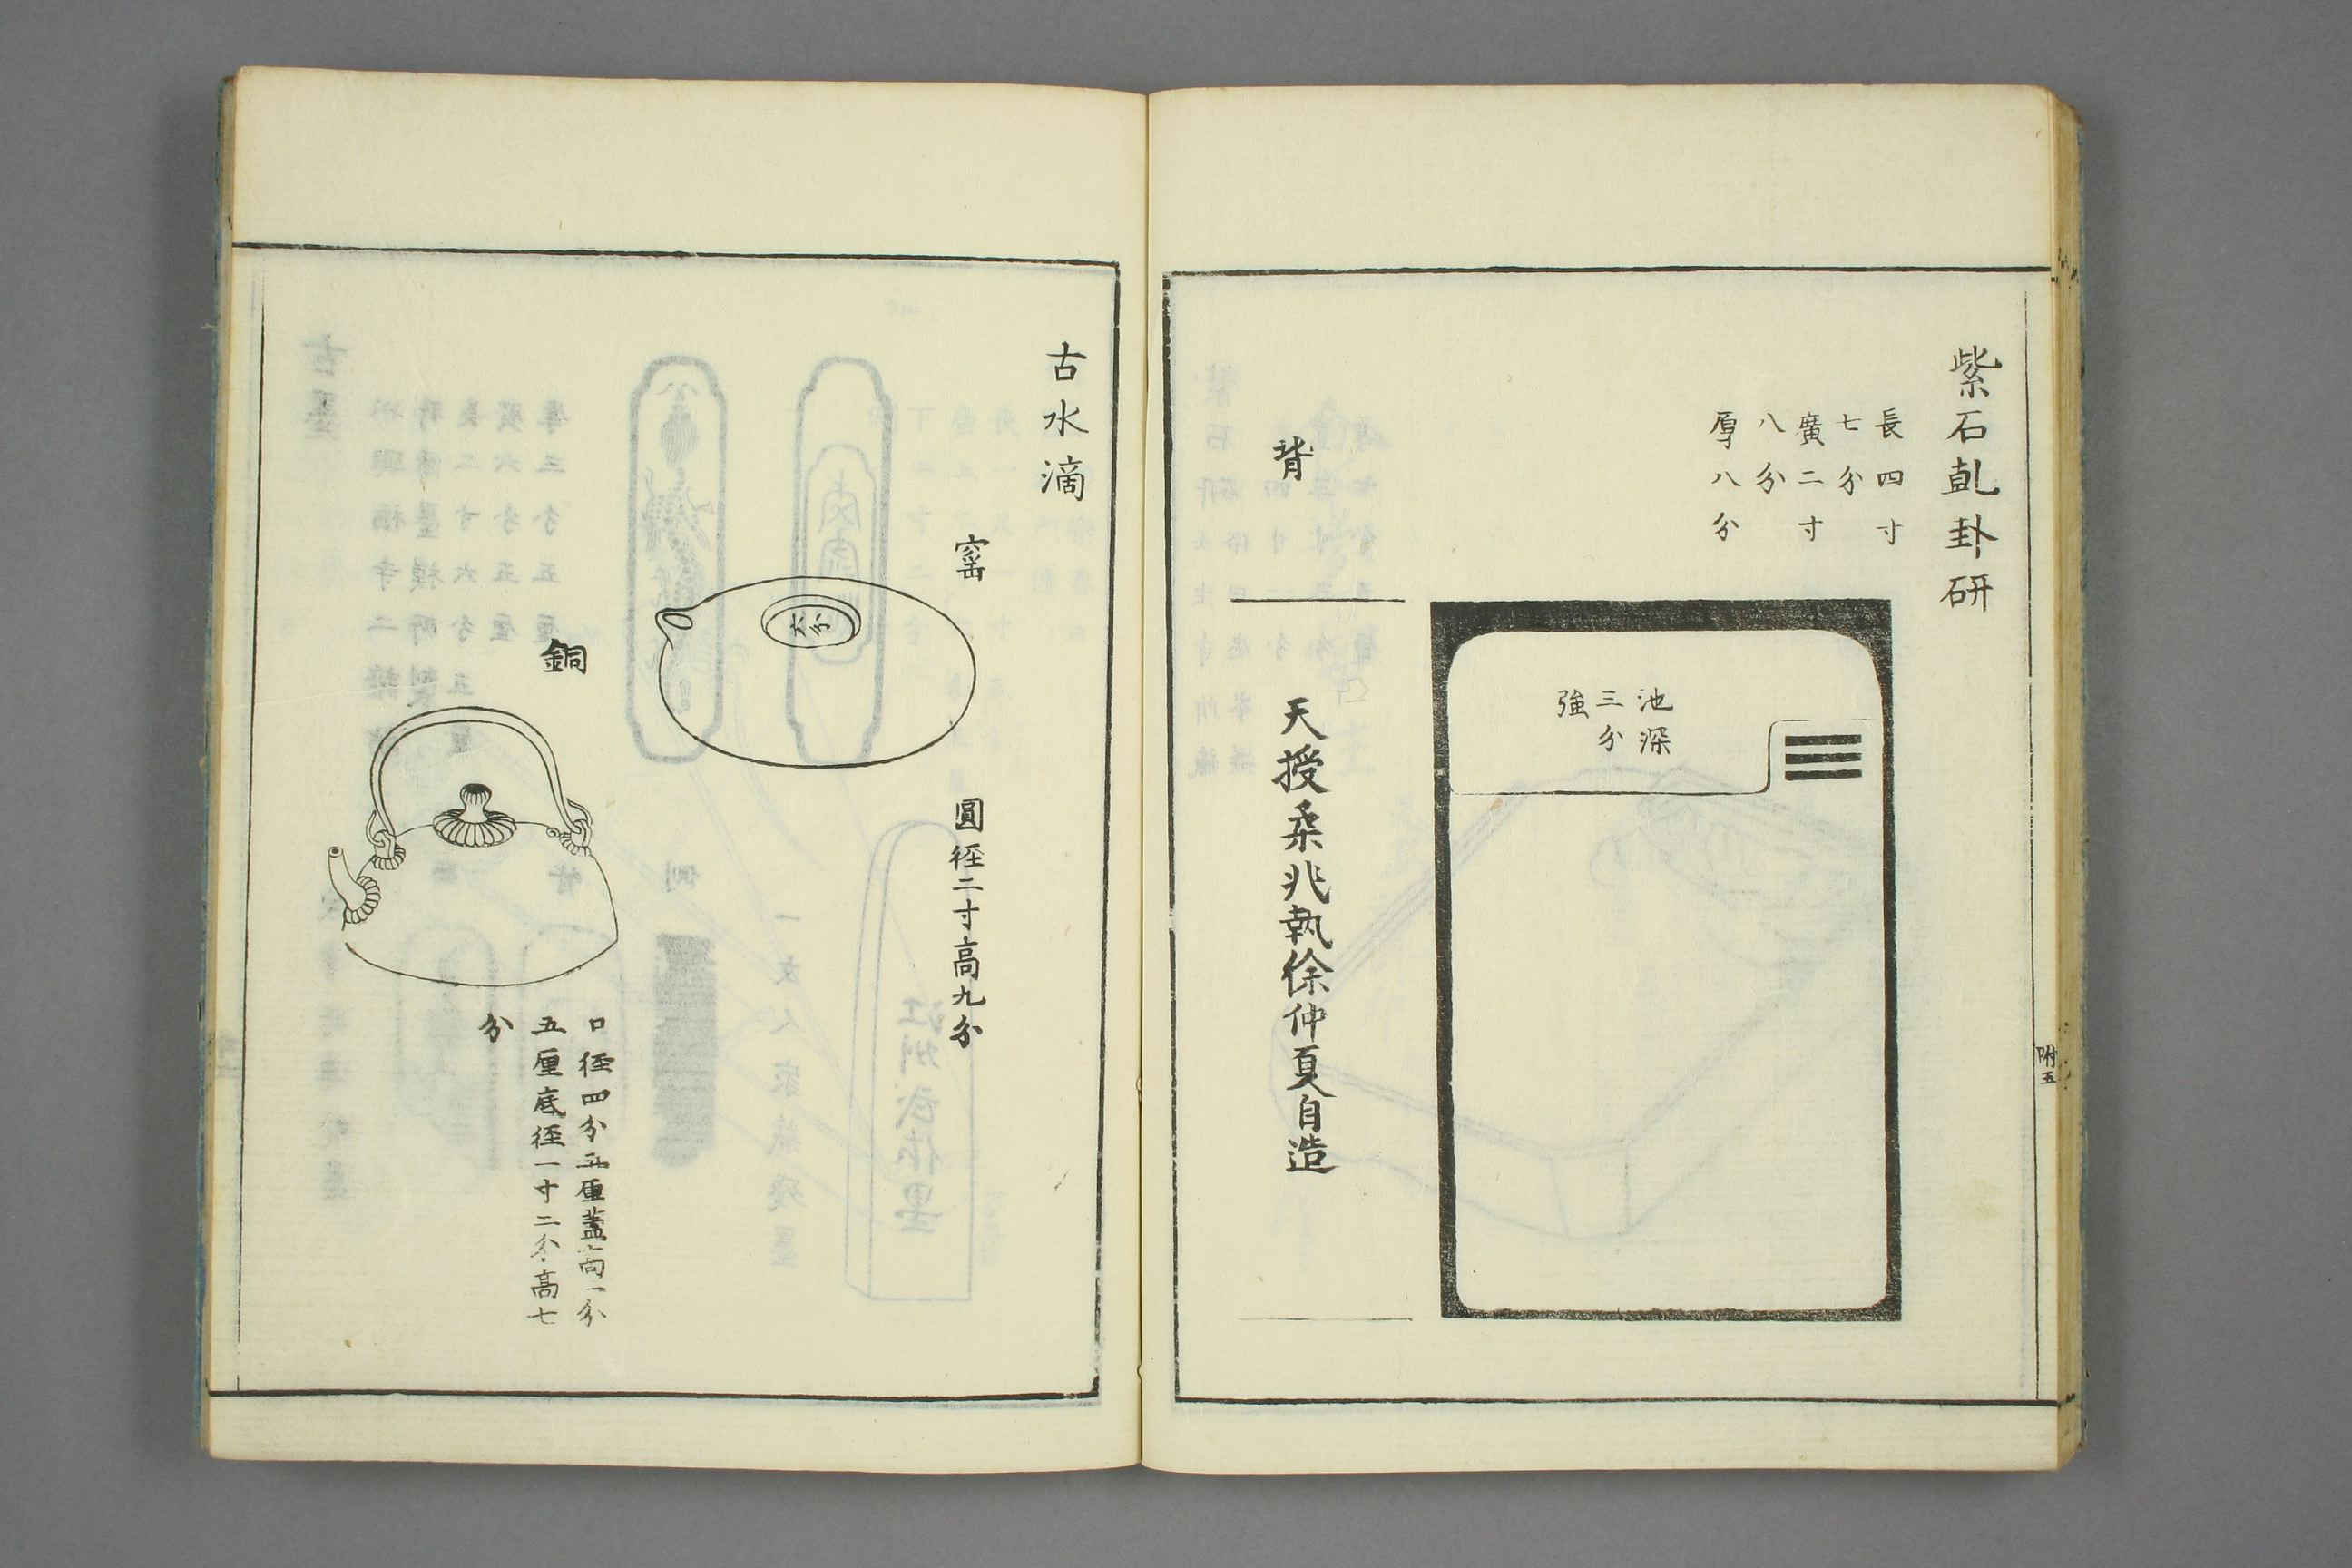 紫石乹卦研
長四寸
七分
廣二寸
八分
厚八分
池深
三分
強
背
天授柔兆執徐仲夏自造
附五
古水滴
窑
六分
圓徑二寸髙九分
銅
口徑四分五厘蓋髙一分
五厘底徑一寸二分髙七
分